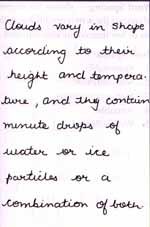 Clouds vary in shape
according to their
height and tempera-
ture, and they contain
minute drops of
water or ice
particles or a
combination of both.